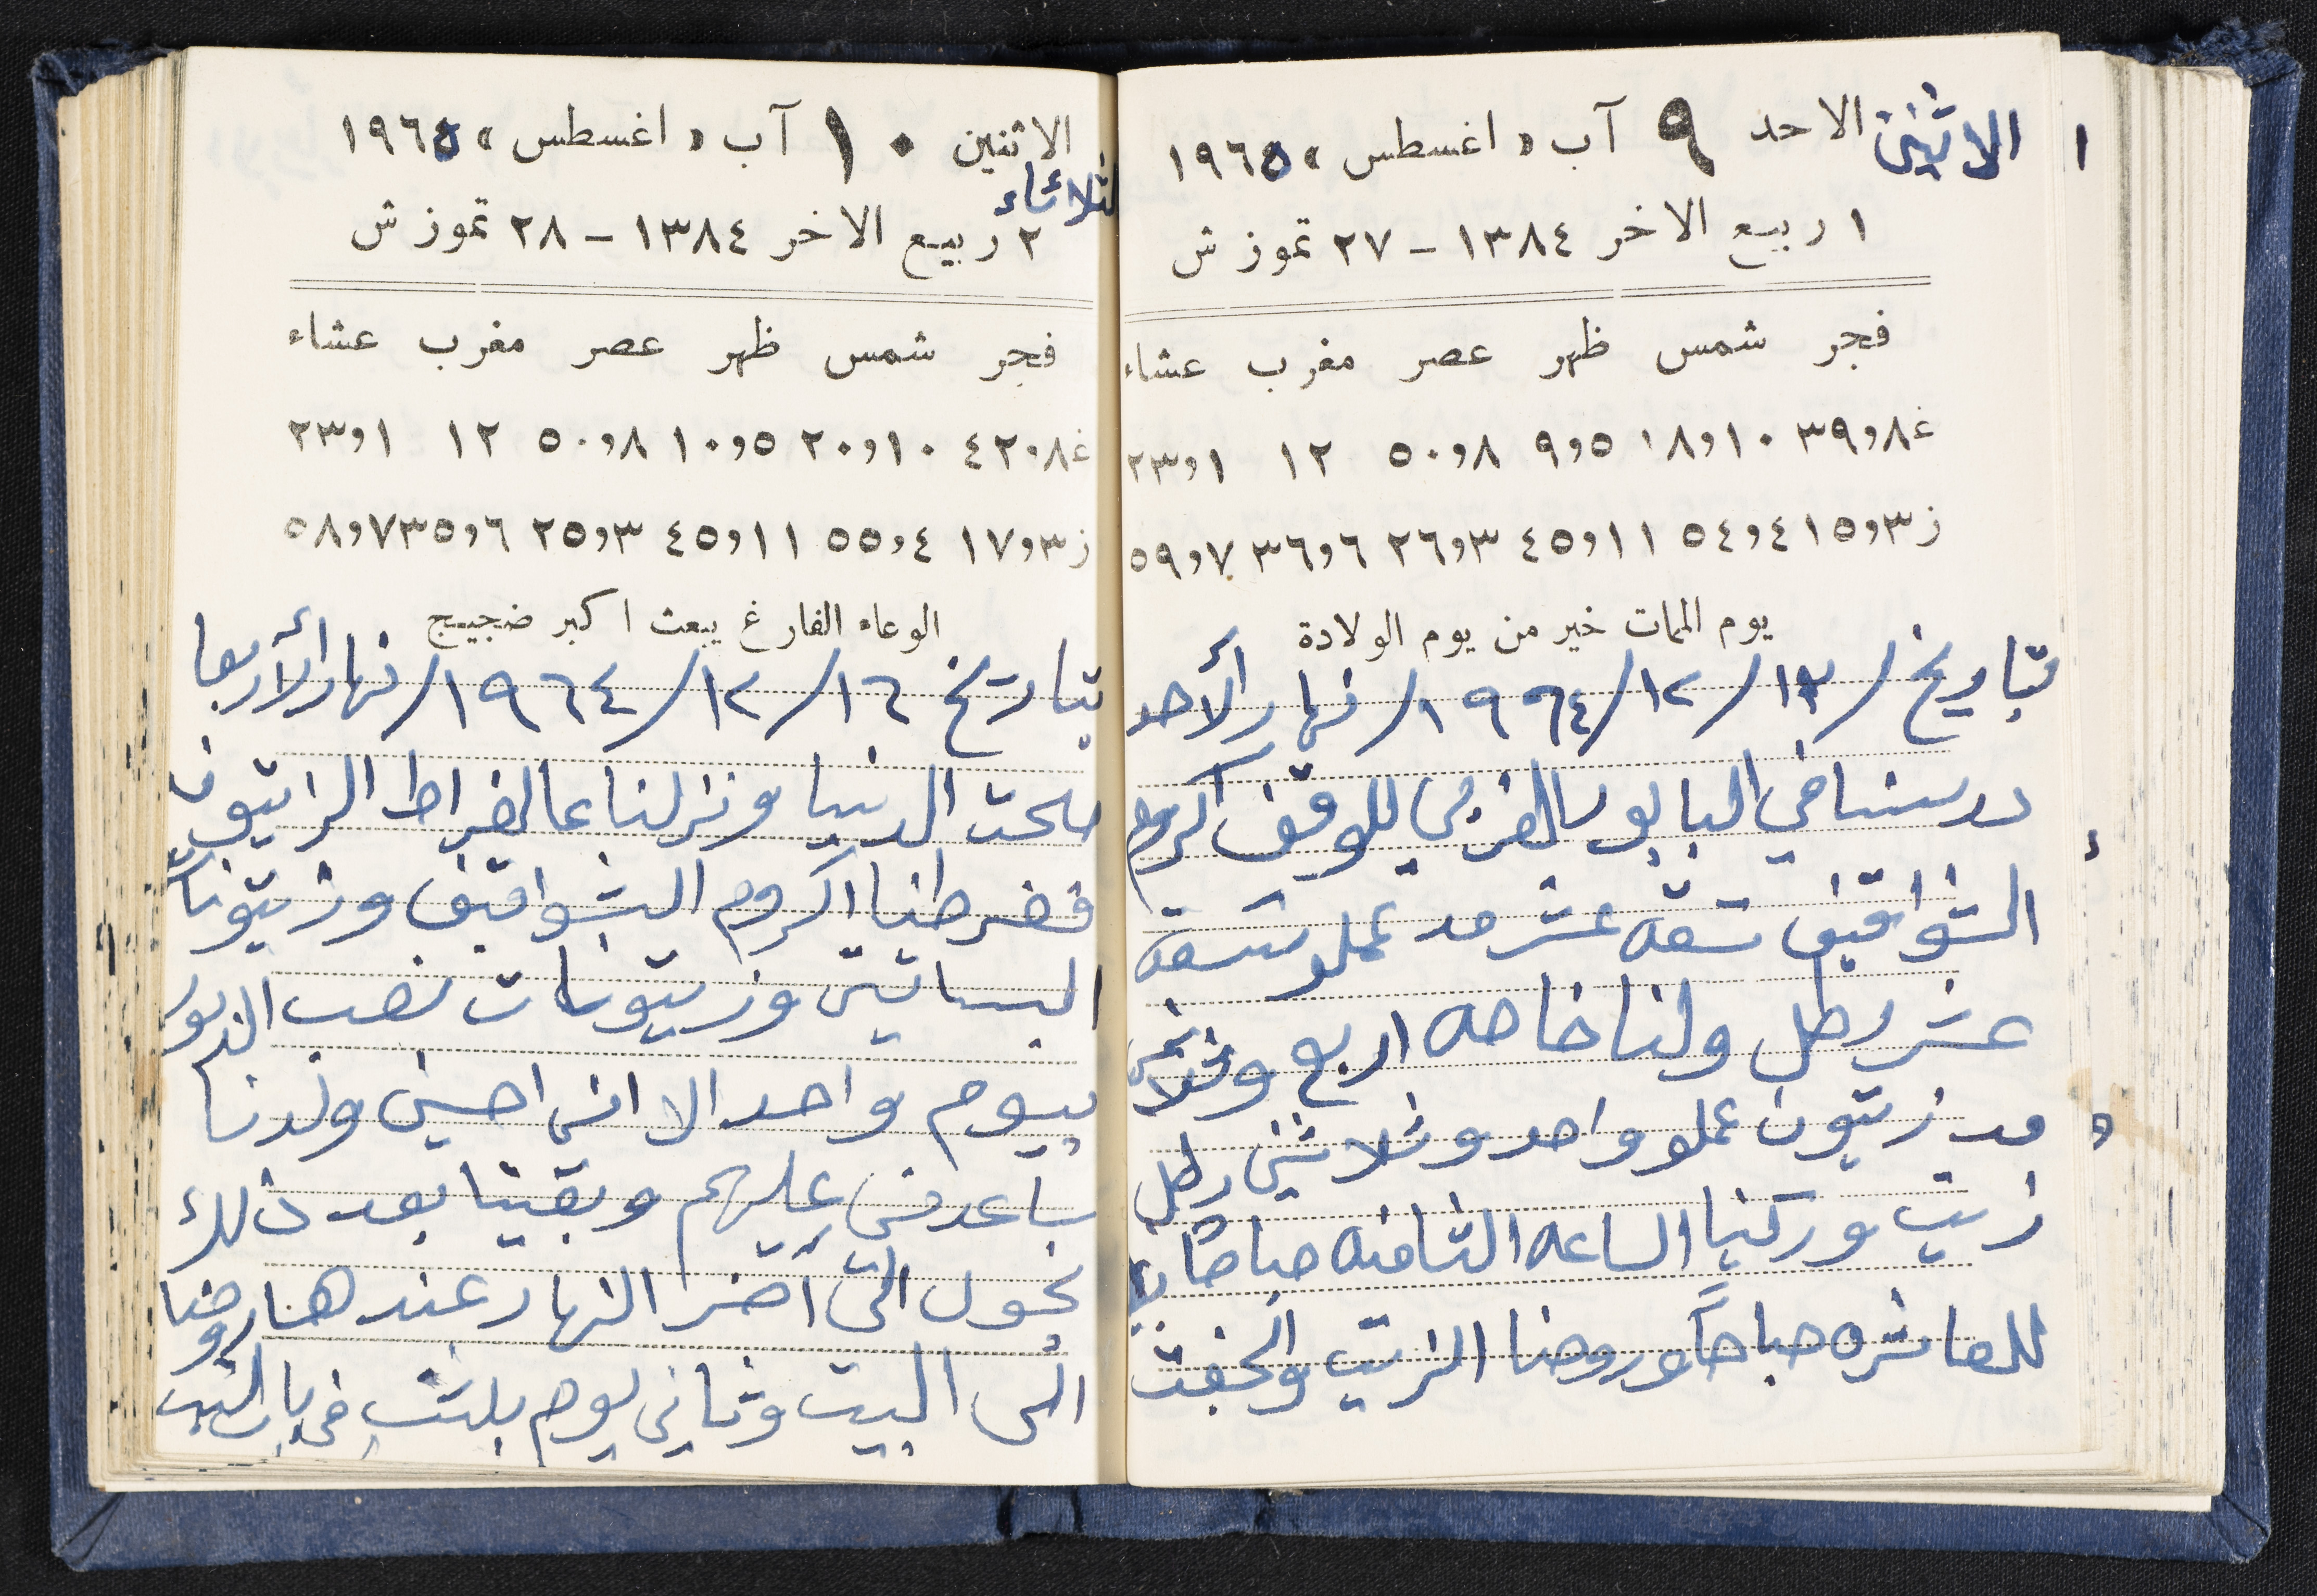 الاثنين الاحد ٩ آب « اغسطس » ١٩٦٥
١ ربيع الاخر ١٣٨٤ - ٢٧ تموز ش
فجر شمس ظهر عصر مغرب عشاء
غ ٣٩و٨ ١٨و١٠ ٩و٥ ٥٠و٨ ١٢ ٢٣و١
ز ١٥و٣ ٥٤و٤ ٤٥و١١ ٢٦و٣ ٣٦و٦ ٥٩و٧
يوم الممات خير من يوم الولادة
بتاريخ /١٣/١٢/١٩٦٤/ نهار الأحد
درسنا في البابور الغربي للوقف اكروم
الشواقيف تسعة عشر مد عملو تسعة
عشر رطل ولنا خاصه اربع وثلاثين
مد زيتون عملو واحد وثلاثين رطل
زيت وركنا الساعه الثامنه صباحاً
للعاشره صباحاً وروحنا الزيت والجفت
الاثنين ١٠ آب « اغسطس » ١٩٦٥
الثلاثاء
٢ ربيع الاخر ١٣٨٤ - ٢٨ تموز ش
فجر شمس ظهر عصر مغرب عشاء
غ ٤٢٠٨ ٢٠و١٠ ١٠و٥ ٥٠و٨ ١٢ ٢٣و١
ز ١٧و٣ ٥٥و٤ ٤٥و١١ ٢٥و٣ ٣٥و٦ ٥٨و٧
الوعاء الفارغ يبعث اكبر ضجيج
بتاريخ ١٦/١٢/١٩٦٤/ نهار الأربعا
صحت الدنيا ونزلنا عالفراط الزيتون
ففرطنا اكروم الشواقيف وزيتونات
البساتين وزيتونات نصب
بيوم واحد الا اني احسين ولدنا
ساعدني عليهم وبقينا بعد ذلك
نحول الى آخر النهار عند هنا روحنا
الى البيت وثاني يوم بلشت في باب البيت